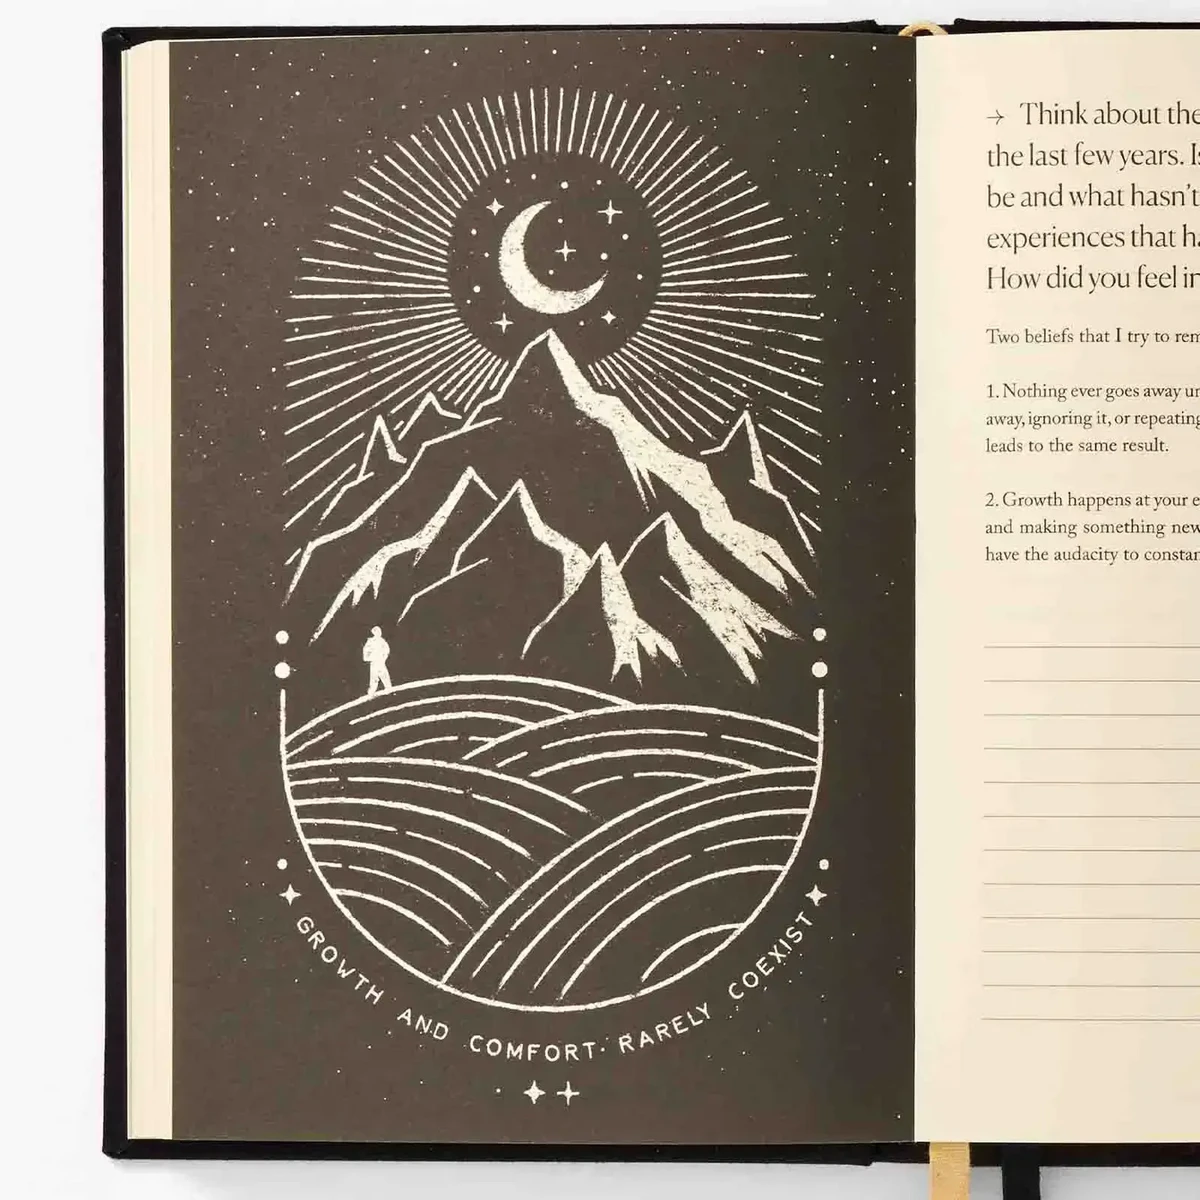 GROWTH AND COMFORT RARELY COEXIST
→ Think about the
the last few years.
be and what hasn't
experiences that
How did you feel in
Two beliefs that I try to
1. Nothing ever goes away
away, ignoring it, or repeating
leads to the same result.
2. Growth happens at your
and making something new
have the audacity to